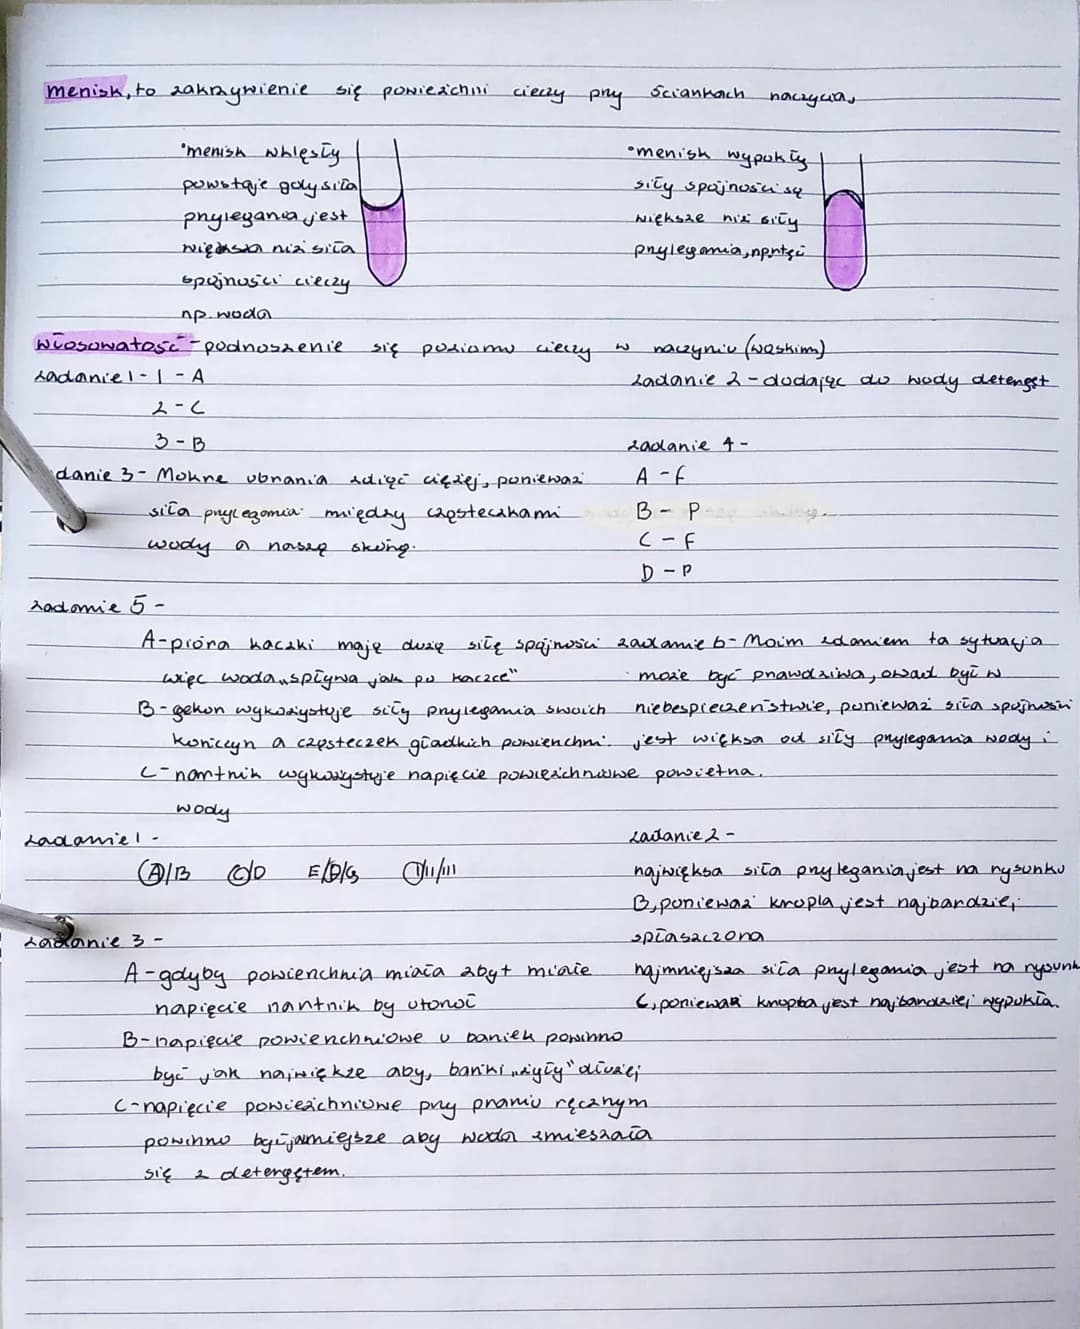 menisk, to zakrzywienie się powierzchni cieczy przy ściankach naczynia,
•menisk wklęsły
powstaje gdy siła
przylegania jest
większa niż siła
spójności cieczy
np. woda
•menisk wypukły
siły spójności są
większe niż siły
przylegania, np rtęć
włosowatość - podnoszenie się poziomu cieczy w naczyniu (wąskim)
zadanie 1 - 1 - A
2 - C
3 - B
zadanie 2 - dodając do wody detergęt
danie 3 - Mokre ubrania zdjąć ciężej, ponieważ
siła przylegania między cząsteczkami
wody a naszą skórą.
zadanie 4 -
A - F
B - P
C - F
D - P
zadanie 5 -
A - pióra kaczki mają dużą siłę spójności
więc woda „spływa jak po kaczce"
B - gekon wykorzystuje siły przylegania swoich
kończyn a cząsteczek gładkich powierzchni.
C - nartnik wykorzystuje napięcie powierzchniowe
wody
zadanie 6 - Moim zdaniem ta sytuacja
może być prawdziwa, owad był w
niebespieczeństwie, ponieważ siła spójności
jest więksa od siły przylegania wody i
powietrza.
zadanie 1 -
A/B C/D E/F/G I/II/III
zadanie 2 -
największa siła przylegania jest na rysunku
B, ponieważ kropla jest najbardziej
spłaszczona
najmniejsza siła przylegania jest na rysunk
C, ponieważ kropla jest najbardziej wypukła.
zadanie 3 -
A - gdyby powierzchnia miała zbyt małe
napięcie nartnik by utonął
B - napięcie powierzchniowe u baniek powinno
być jak największe aby, bańki „żyły" dłużej
C - napięcie powierzchniowe przy praniu ręcznym
powinno być jak mniejsze aby woda zmieszała
się z detergętem.